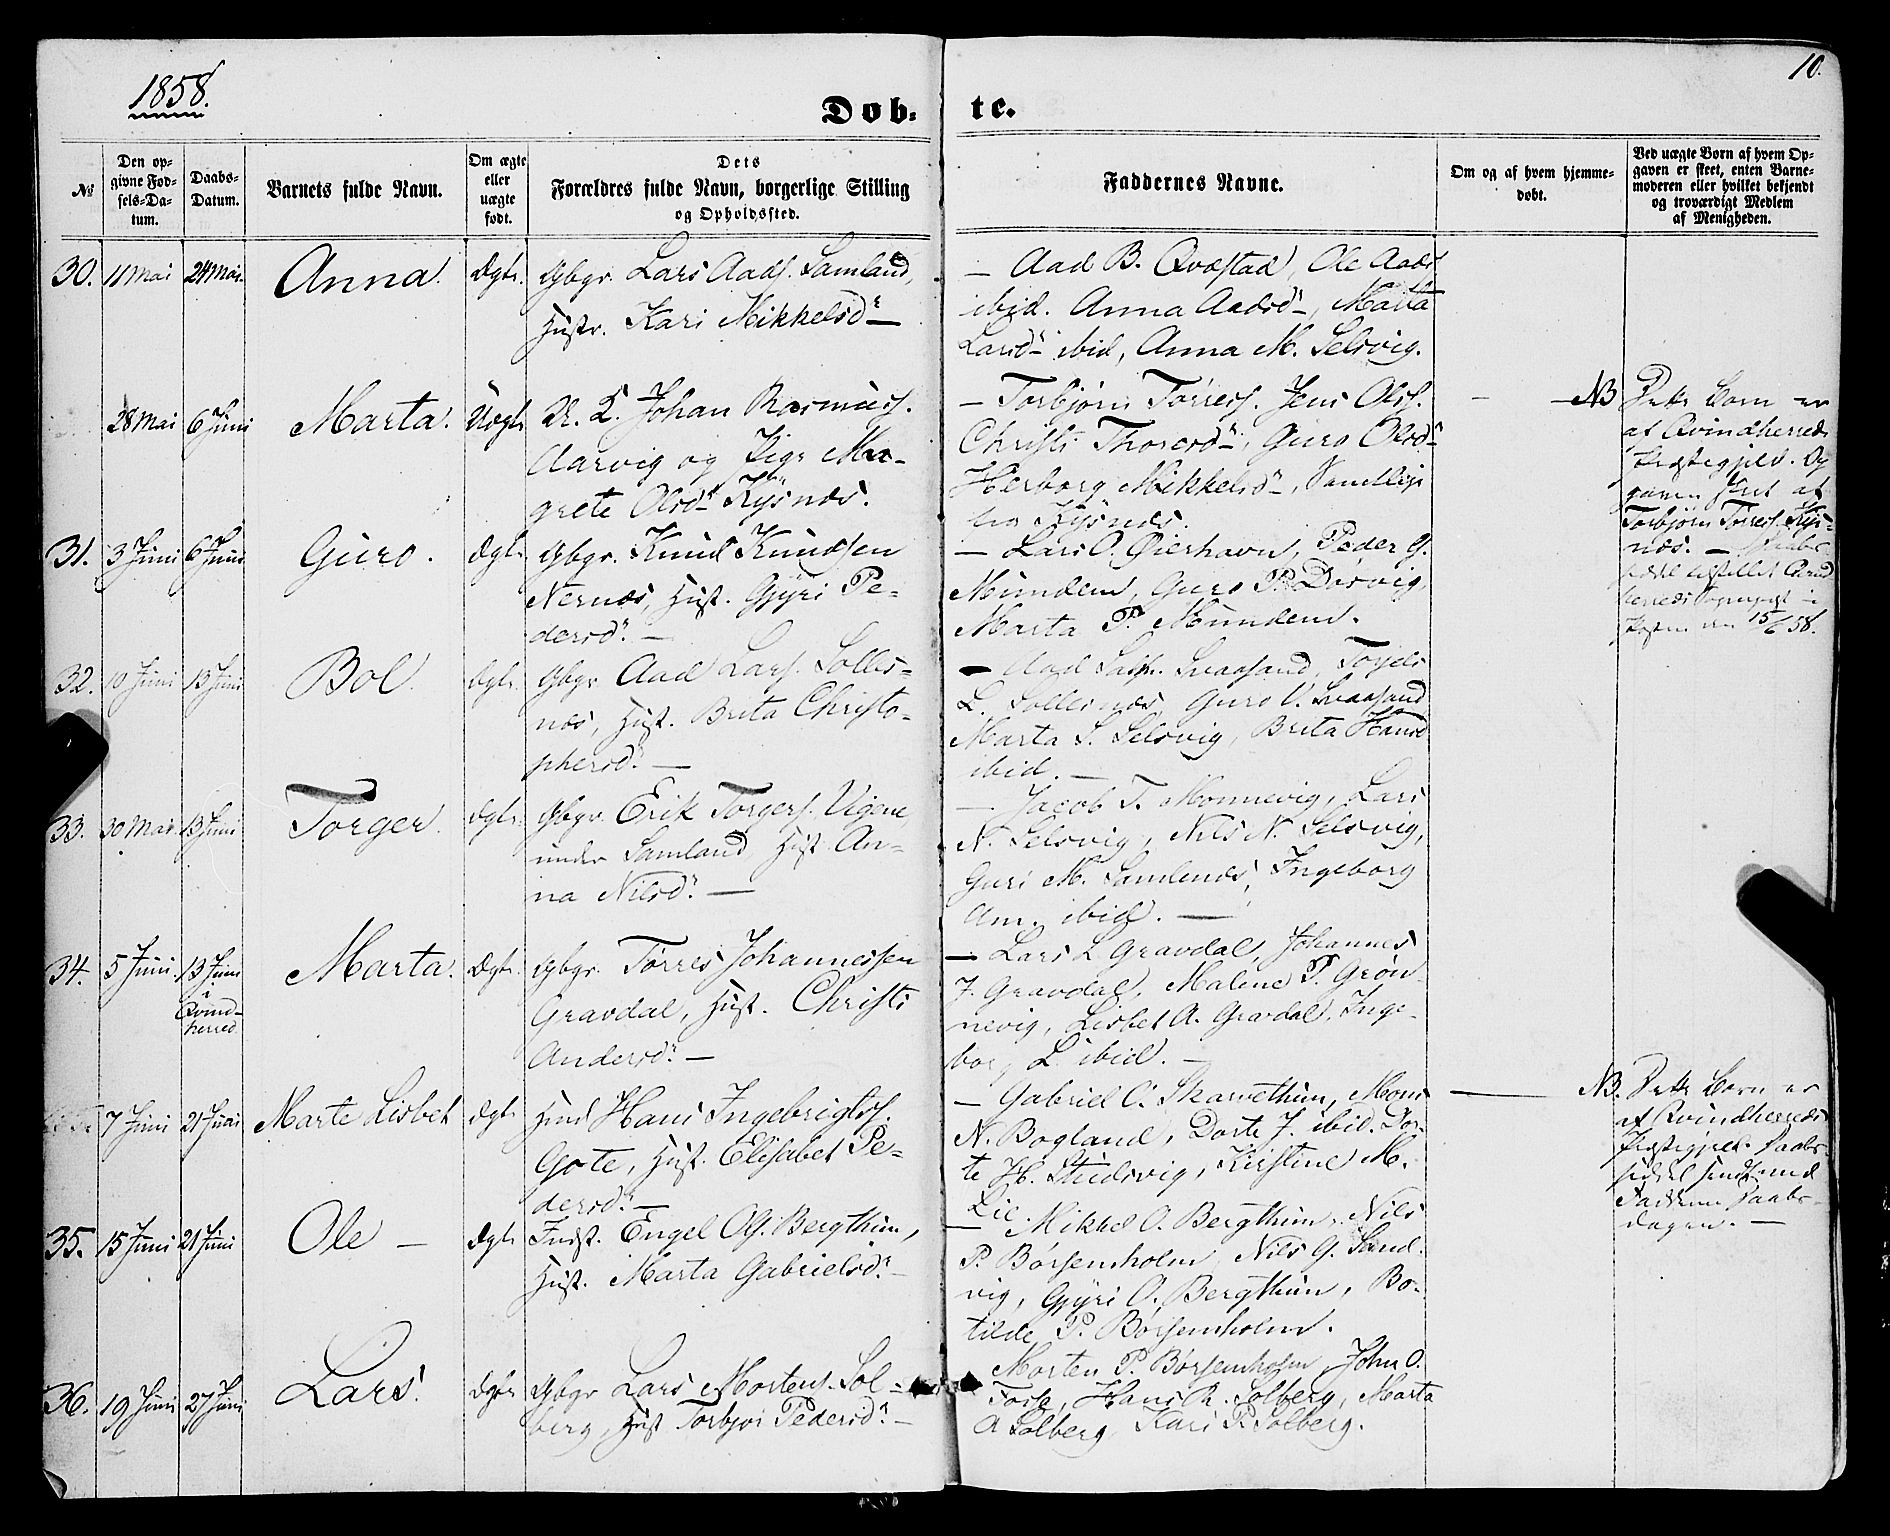 1858.
10.
Døb-te.
№
Den op-
givne Fød-
sels-Da-
tum.
Daabs-
Datum.
Barnets fulde Navn.
Om ægte
eller
uægte
født.
Dets
Forældres fulde Navn, borgerlige Stilling
og Opholdssted.
Faddernes Navne.
Om og af hvem hjemme-
døbt.
Ved uægte Børn af hvem Op-
gaven er skeet, enten Barne-
moderen eller hvilket bekjendt
og troværdigt Medlem
af Menigheden.
30. 11 Mai 24 Mai. Anna. Ægte.
Gbgr. Lars Aads. Samland,
Hustr. Kari Mikkelsdr —
— Aad B. Qvæstad, Ole Aads
ibid. Anna Aadsdr —, Marta
Larsdr — ibid, Anna M. Selsvig.
28 Mai 6 Juni Marta. Uægte
U. K. Johan Rasmuss.
Aarvig og Pige Ma-
grete Olsdr Kysnæs.
— Torbjørn Tørress. Jens Olss.
Christi Thoresdr —, Guro Olsdr —
Herborg Mikkelsdr —, Samtlige
Kysnæs.
NB Dette Barn er
af Qvindherreds
Præstegjeld. Op
gaven skeet af
Torbjørn Tørress. Kys-
næs. — Daabs-
seddel tilstillet Qvind
herreds Sognepræst i
Posten den 15/6 58.
31. 3 Juni 6 Juni Guro. Ægte
Gbgr. Knud Knudsen
Nernæs, Hust. Gjyri Pe-
dersdr. —
— Lars O. Øierhavn, Peder G.
Mundem, Guro P. Disvig,
Marta P. Mundem.
32. 10 Juni 13 Juni Bol. Ægte
Gbgr Aad Lars. Solles-
næs, Hust. Brita Christo-
phersdr. —
— Aad Svaasand, Torjels
L. Sollesnæs, Guro V. Svaasand
Marta S. Selsvig, Brita Hansd
ibid. —
33. 30 Mai 13 Juni Torger. Ægte.
Gbgr. Erik Torgers. Vigene
under Samland, Hust. An-
na Nilsdr. —
— Jacob T. Monnevig, Lars
N. Selsvig, Nils N. Selsvig,
Guri M. Samlends, Ingeborg
Am. ibid. —
34. 5 Juni 13 Juni
i
Qvind-
herred
Marta. Ægte.
Gbgr. Tørres Johannessen
Gravdal, Hust. Christi
Andersdr. —
— Lars L Gravdal, Johannes
J. Gravdal, Malene P. Grøn
nevig, Lisbet A. Gravdal, Inge-
borg L. ibid. —
7 Juni 21 Juni Marte Lisbet Ægte
Hmd Hans Ingebrigtss.
Gote, Hust. Elisabet Pe-
dersdr. —
— Gabriel O. Skarvethun, Mons
N. Bogland, Dorte J. ibid. Dor-
te H. Studsvig, Kirstine M.
Lie
NB. Dette Barn er
af Qvindherreds
Præstegjeld. Daabs-
seddel sendt med
Fadderne Daabs-
dagen. —
35. 15 Juni 21 Juni Ole — Ægte
Indst. Engel Ols. Bergthun,
Hust. Marta Gabrielsdr. —
— Mikkel O. Bergthun, Nils
P. Børsenholm, Nils G. Sand-
vig, Gjyri O. Bergthun, Bo-
tilde P. Børsemholm.
36. 19 Juni 27 Juni Lars. Ægte
Gbgr Lars Mortens. Sol-
berg, Hust Torbjør Pedersdr. —
Morten P. Børsemholm, John O.
Hans R. Solberg, Marta
A Solberg, Kari P. Solberg.